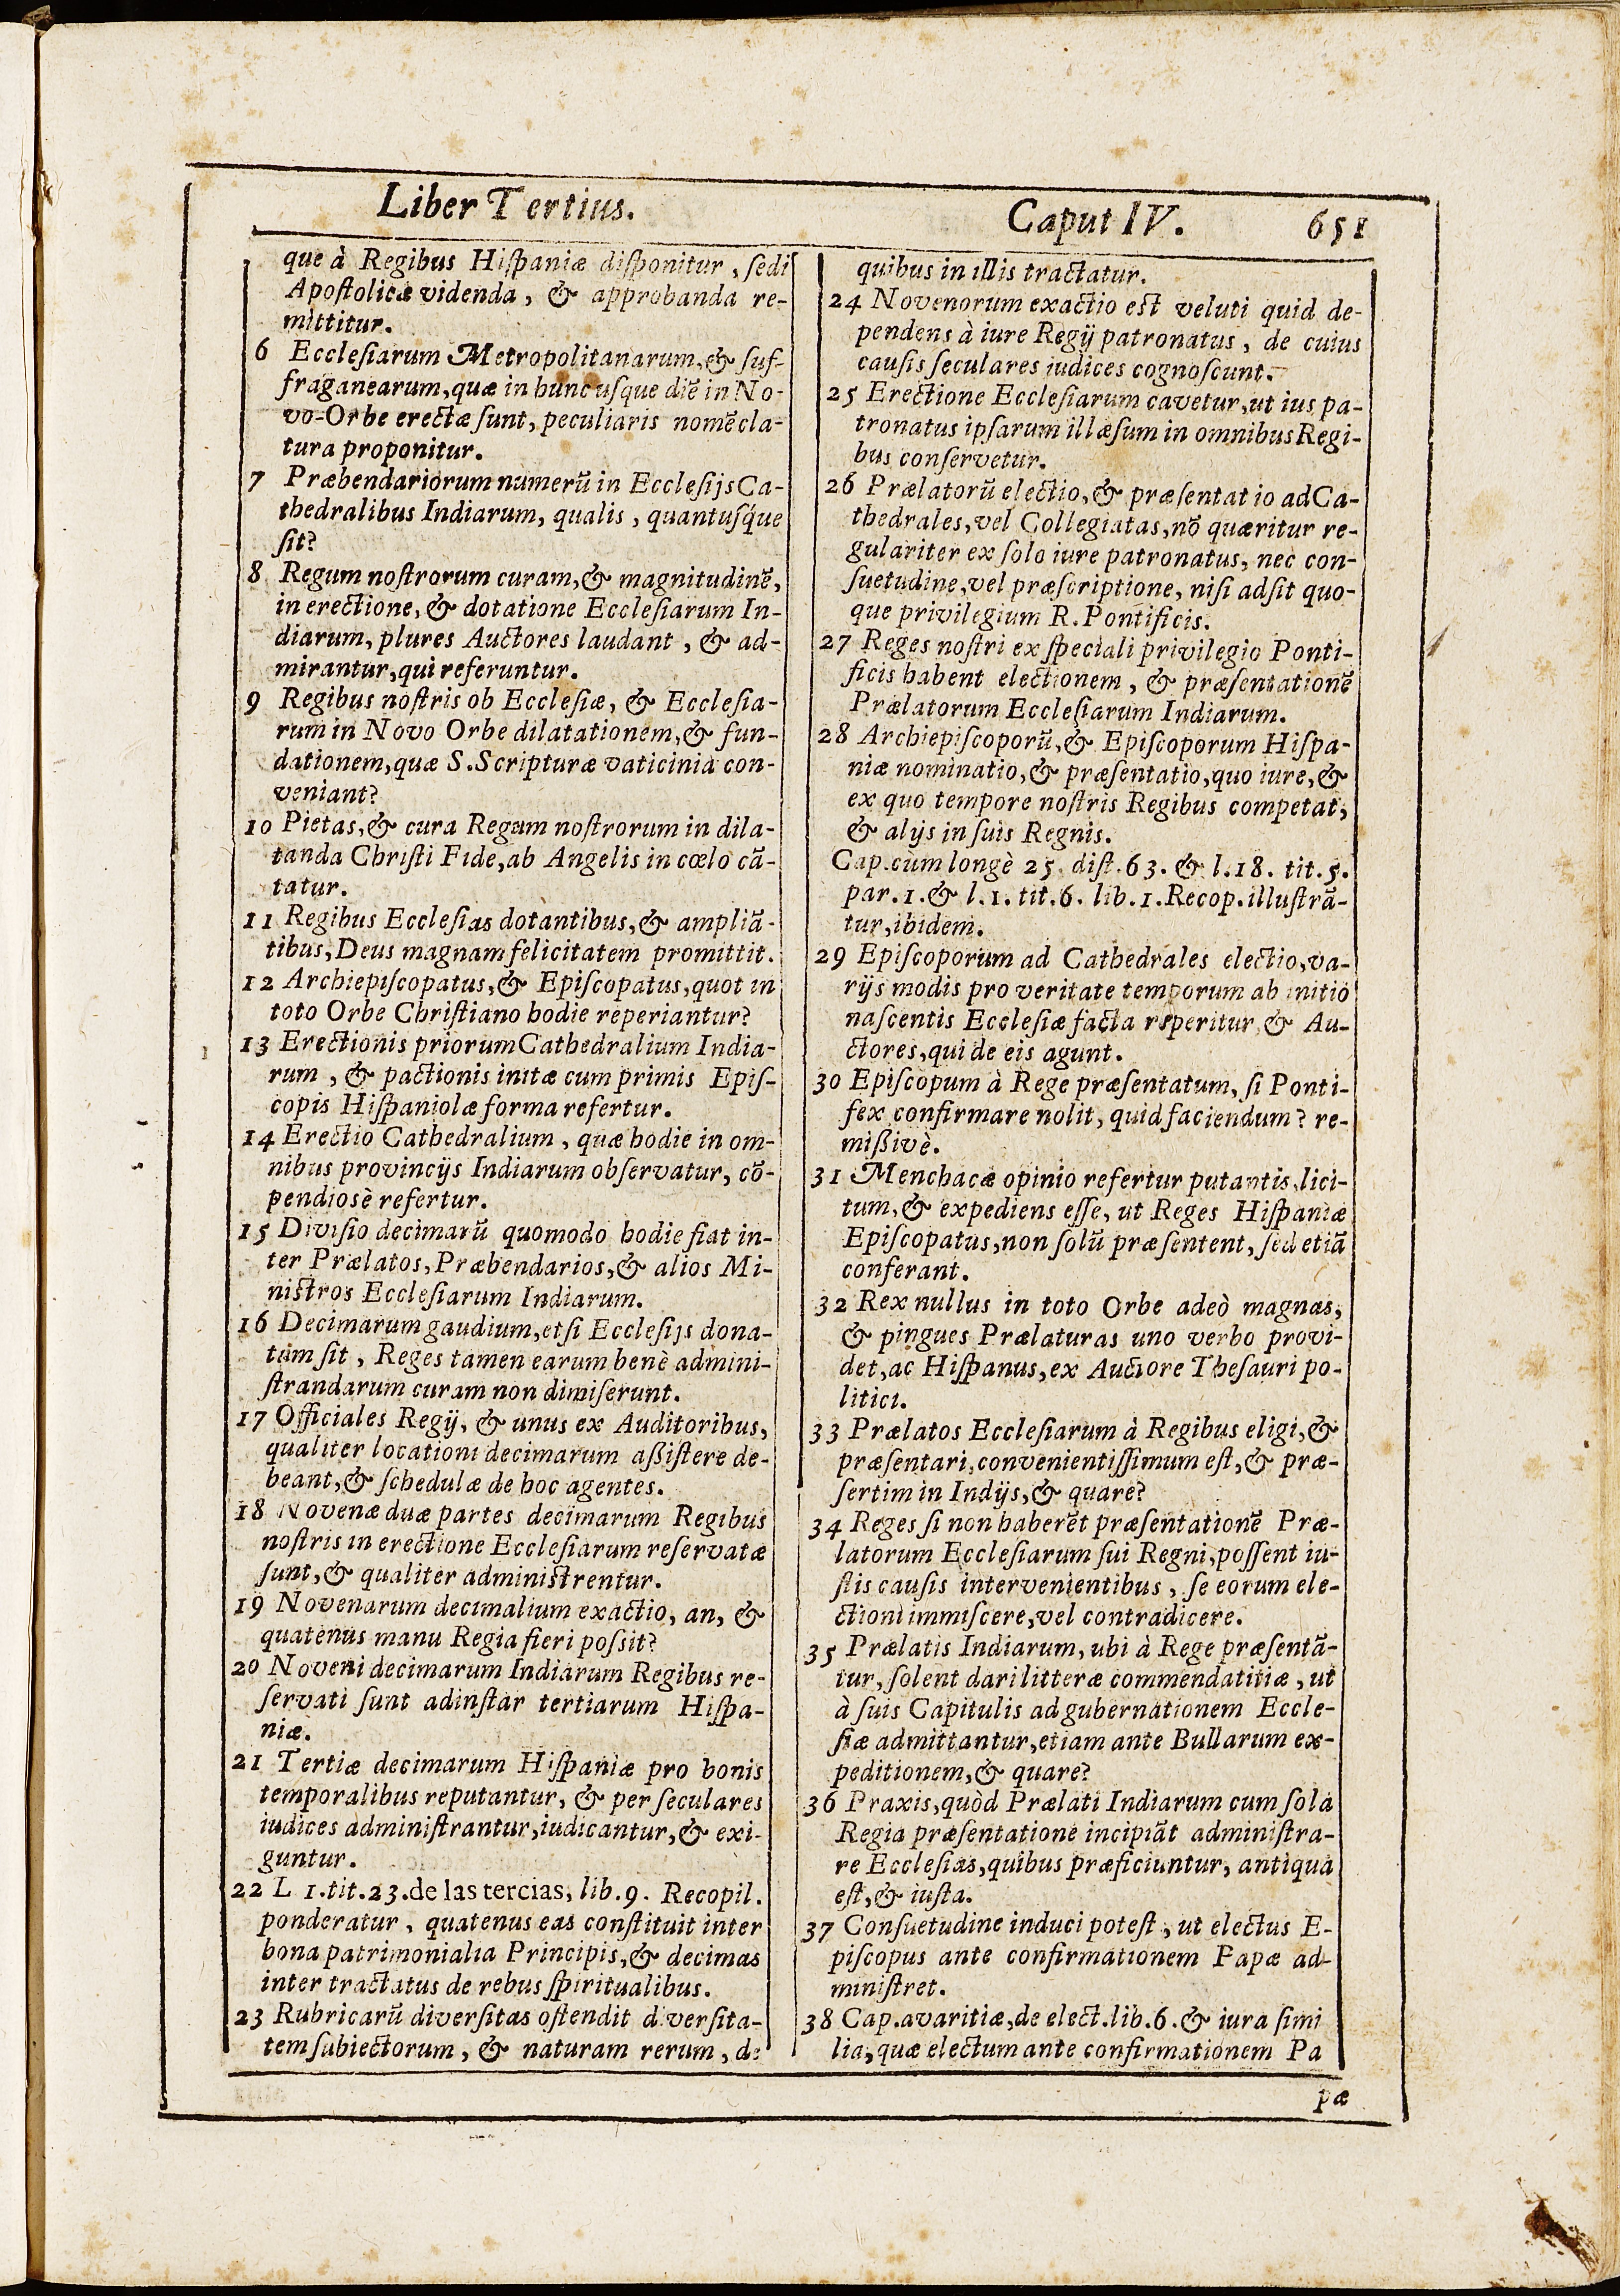 Liber Tertius.
Caput IV. 651
que à Regibus Hiſpaniæ diſponitur, ſedi
Apoſtolicæ videnda, & approbanda re-
mittitur.
6 Eccleſiarum Metropolitanarum, & ſuf-
fraganearum, quæ in hunc uſque diē in No-
vo-Orbe erectæ ſunt, peculiaris nomēcla-
tura proponitur.
7 Præbendariorum numerū in Eccleſijs Ca-
thedralibus Indiarum, qualis, quantuſq́ue
ſit?
8 Regum noſtrorum curam, & magnitudinē,
in erectione, & dotatione Eccleſiarum In-
diarum, plures Auctores laudant, & ad-
mirantur, qui referuntur.
9 Regibus noſtris ob Eccleſiæ, & Eccleſia-
rum in Novo Orbe dilatationem, & fun-
dationem, quæ S. Scripturæ vaticinia con-
veniant?
10 Pietas, & cura Regum noſtrorum in dila-
tanda Chriſti Fide, ab Angelis in cœlo cā-
tatur.
11 Regibus Eccleſias dotantibus, & ampliā-
tibus, Deus magnam felicitatem promittit.
12 Archiepiſcopatus, & Epiſcopatus, quot in
toto Orbe Chriſtiano hodie reperiantur?
13 Erectionis priorum Cathedralium India-
rum, & pactionis initæ cum primis Epiſ-
copis Hiſpaniolæ forma refertur.
14 Erectio Cathedralium, quæ hodie in om-
nibus provincijs Indiarum obſervatur, cō-
pendiosè refertur.
15 Diviſio decimarū quomodo hodie fiat in-
ter Prælatos, Præbendarios, & alios Mi-
niſtros Eccleſiarum Indiarum.
16 Decimarum gaudium, etſi Eccleſijs dona-
tum ſit, Reges tamen earum benè admini-
ſtrandarum curam non dimiſerunt.
17 Officiales Regij, & unus ex Auditoribus,
qualiter locationi decimarum aßiſtere de-
beant, & ſchedulæ de hoc agentes.
18 Novenæ duæ partes decimarum Regibus
noſtris in erectione Eccleſiarum reſervatæ
ſunt, & qualiter adminiſtrentur.
19 Novenarum decimalium exactio, an, &
quatenus manu Regia fieri poſsit?
20 Noveni decimarum Indiarum Regibus re-
ſervati ſunt adinſtar tertiarum Hiſpa-
niæ.
21 Tertiæ decimarum Hiſpaniæ pro bonis
temporalibus reputantur, & per ſeculares
iudices adminiſtrantur, iudicantur, & exi-
guntur.
22 L 1. tit. 23. de las tercias, lib. 9. Recopil.
ponderatur, quatenus eas conſtituit inter
bona patrimonialia Principis, & decimas
inter tractatus de rebus ſpiritualibus.
23 Rubricarū diverſitas oſtendit diverſita-
tem ſubiectorum, & naturam rerum, de
quibus in illis tractatur.
24 Novenorum exactio eſt veluti quid de-
pendens à iure Regij patronatus, de cuius
cauſis ſeculares iudices cognoſcunt.
25 Erectione Eccleſiarum cavetur, ut ius pa-
tronatus ipſarum illæſum in omnibus Regi-
bus conſervetur.
26 Prælatorū electio, & præſentatio ad Ca-
thedrales, vel Collegiatas, nō quæritur re-
gulariter ex ſolo iure patronatus, nec con-
ſuetudine, vel præſcriptione, niſi adſit quo-
que privilegium R. Pontificis.
27 Reges noſtri ex ſpeciali privilegio Ponti-
ficis habent electionem, & præſentationē
Prælatorum Eccleſiarum Indiarum.
28 Archiepiſcoporū, & Epiſcoporum Hiſpa-
niæ nominatio, & præſentatio, quo iure, &
ex quo tempore noſtris Regibus competat,
& alijs in ſuis Regnis.
Cap. cùm longè 25. diſt. 63. & l. 18. tit. 5.
par. 1. & l. 1. tit. 6. lib. 1. Recop. illuſtrā-
tur, ibidem.
29 Epiſcoporum ad Cathedrales electio, va-
rijs modis pro veritate temporum ab initio
naſcentis Eccleſiæ facta reperitur, & Au-
ctores, qui de eis agunt.
30 Epiſcopum à Rege præſentatum, ſi Ponti-
fex confirmare nolit, quid faciendum? re-
mißivè.
31 Menchacæ opinio refertur putantis, lici-
tum, & expediens eſſe, ut Reges Hiſpaniæ
Epiſcopatus, non ſolū præſentent, ſed etiā
conferant.
32 Rex nullus in toto Orbe adeò magnas,
& pingues Prælaturas uno verbo provi-
det, ac Hiſpanus, ex Auctore Theſauri po-
litici.
33 Prælatos Eccleſiarum à Regibus eligi, &
præſentari, convenientiſſimum eſt, & præ-
ſertim in Indijs, & quare?
34 Reges ſi non haberēt præſentationē Præ-
latorum Eccleſiarum ſui Regni, poſſent iu-
ſtis cauſis intervenientibus, ſe eorum ele-
ctioni immiſcere, vel contradicere.
35 Prælatis Indiarum, ubi à Rege præſentā-
tur, ſolent dari litteræ commendatitiæ, ut
à ſuis Capitulis ad gubernationem Eccle-
ſiæ admittantur, etiam ante Bullarum ex-
peditionem, & quare?
36 Praxis, quòd Prælati Indiarum cum ſola
Regia præſentatione incipiāt adminiſtra-
re Eccleſias, quibus præficiuntur, antiqua
eſt, & iuſta.
37 Conſuetudine induci poteſt, ut electus E-
piſcopus ante confirmationem Papæ ad-
miniſtret.
38 Cap. avaritiæ, de elect. lib. 6. & iura ſimi
lia, quæ electum ante confirmationem Pa
pæ